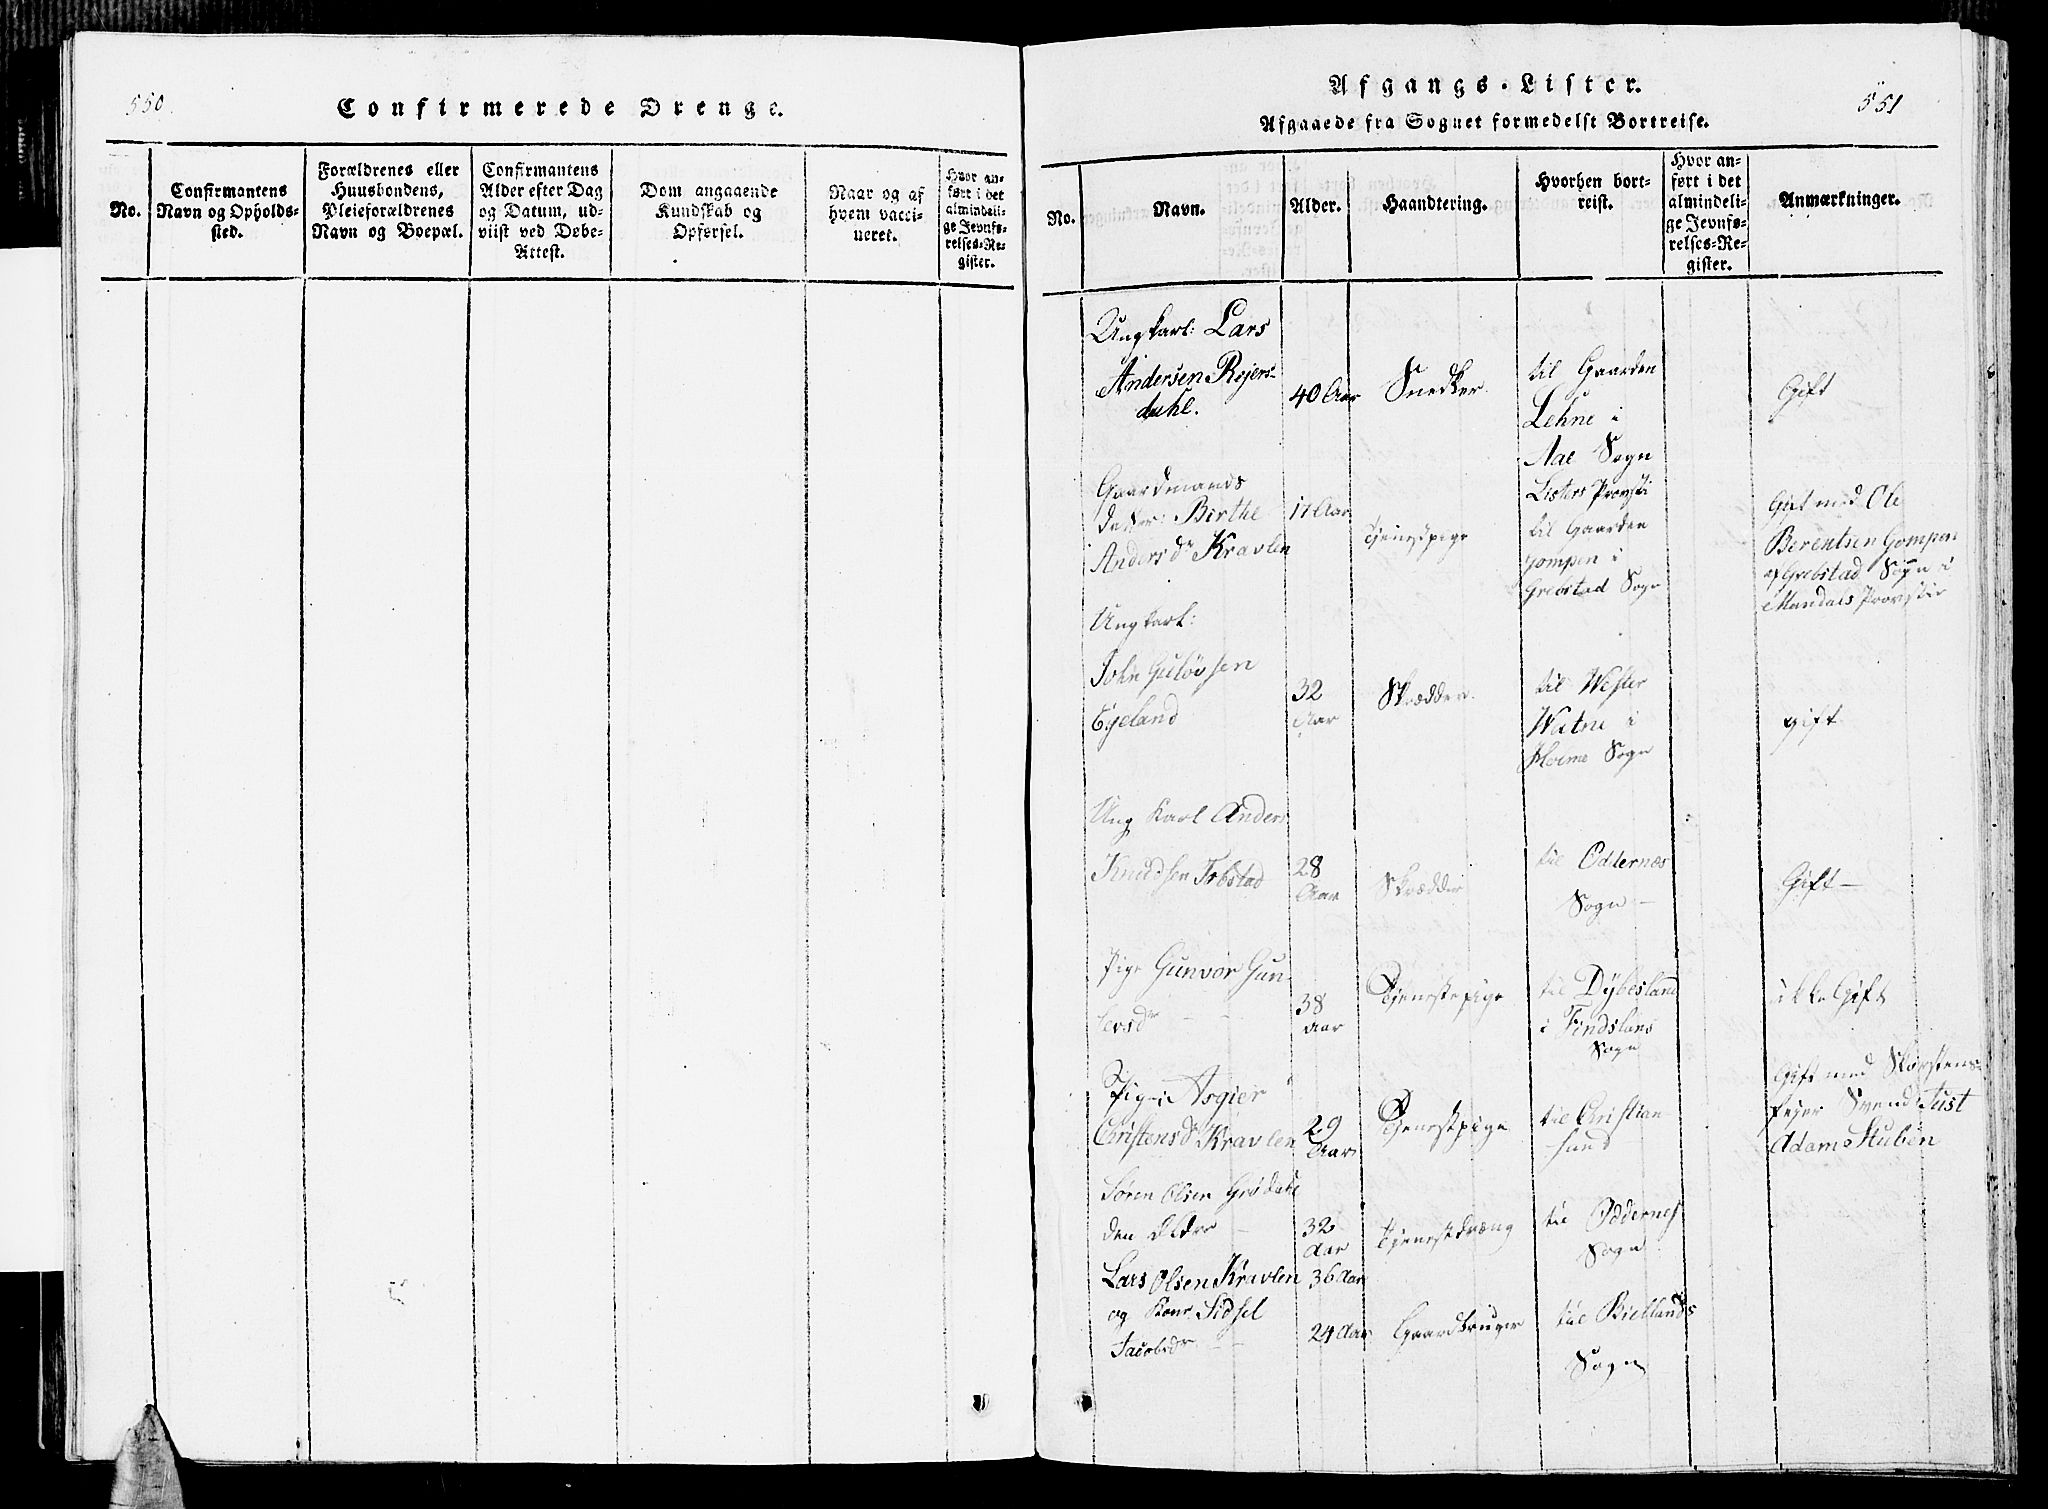 550.
Confirmerede Drenge.
No.
Confirmantens
Navn og Opholds-
sted.
Forældrenes eller
Huusbondens,
Pleieforældrenes
Navn og Boepæl.
Confirmantens
Alder efter Dag
og Datum, ud-
viist ved Døbe-
Attest.
Dom angaaende
Kundskab og
Opførsel.
Naar og af
hvem vacci-
neret.
Hvor an-
ført i det
almindeli-
ge Jevnfø-
relses-Re-
gister.
551
Afgangs-Lister.
Afgaaede fra Sognet formedelst Bortreise.
No.
Navn.
Alder.
Haandtering.
Hvorhen bort-
reist.
Hvor an-
ført i det
almindeli-
ge Jevnfø-
relses-Re-
gister.
Anmærkninger.
Ungkarl: Lars
Andersen Rejers-
dahl.
40 Aar
Snedker.
til Gaarden
Lehne i
Aae Sogn
Listers Provsti
Gift
Gaardmands
datter: Birthe
Anders dr Kravlen
17 Aar
Tjenestpige
til Gaarden
Gompen i
Grebstad Sogn
Gift med Ole
Berentsen Gompen
af Grebstad Sogn i
Mandals Provstie
Ungkarl:
John Gulovsen
Eyeland
32
Aar
Skrædder.
til Wester
Watne i
Holme Sogn
gift
Ung Karl Anders
Knudsen Fobstad
28
Aar
Skrædder
til Oddernæs
Sogn -
Gift -
Pige Gunvor Gun
lersdr - -
38
Aar
Tjenestepige
til Dybesland
i Findslans
Sogn
ikke Gift
Pige: Asgier
Christensdr Kravlen
29
Aar
Tjenestpige
til Christian-
sund
Gift med Skorstens-
fejer Svend Just
Adam Stuben
Søren Olsen Grødahl
den Eldre -
32
Aar
Tjenestdræng
til Oddernes
Sogn
Lars Olsen Kravlen
og Kone Sidsel
Jacobsdr - -
36 Aar
24 Aar
Gaardbruger
til Biellands
Sogn